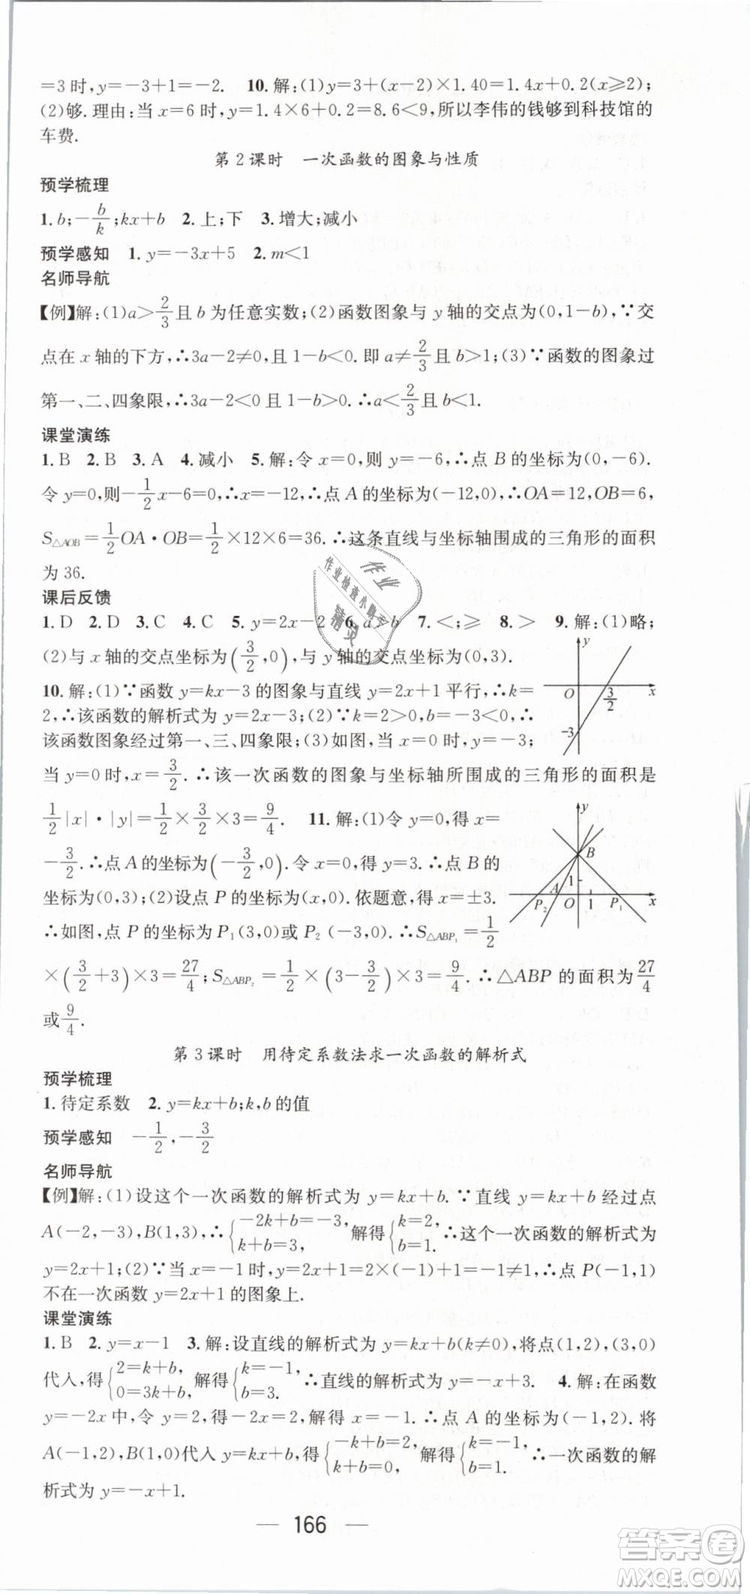 =3时,y=-3+1=-2. 10.解:(1)y=3+(x-2)×1.40=1.4x+0.2(x≥2);
(2)够.理由:当x=6时,y=1.4×6+0.2=8.6<9,所以李伟的钱够到科技馆的
车费.
第2课时 一次函数的图象与性质
预学梳理
1. b;-b/k;kx+b 2.上;下 3.增大;减小
预学感知 1. y=-3x+5 2. m<1
名师导航
【例】解:(1)a>2/3且b为任意实数;(2)函数图象与y轴的交点为(0,1-b),∵交
点在x轴的下方,∴3a-2≠0,1-b<0.即a≠2/3,b>1;(3)∵函数的图象过
第一、二、四象限,∴3a-2<0.∴a<2/3.
课堂演练
1. B 2. B 3. A 4.减小 5.解:令x=0,则y=-6,∴点B的坐标为(0,-6).
令y=0,则-1/2x-6=0,∴x=-12,∴点A的坐标为(-12,0),∴OA=12,OB=6,
S△AOB=1/2OA·OB=1/2×12×6=36.∴这条直线与坐标轴围成的三角形的面积
为36.
课后反馈
1. D 2. D 3. C 4. C 5. y=2x-2 6. a>b 7. <;≥ 8. >;> 9.解:(1)略;
(2)与x轴的交点坐标为(3/2,0),与y轴的交点坐标为(0,3).
10.解:(1)∵函数y=kx-3的图象与直线y=2x+1平行,∴k=
2,∴该函数的解析式为y=2x-3;(2)∵k=2>0,b=-3<0,∴
该函数图象经过第一、三、四象限;(3)如图,当x=0时,y=-3;
当y=0时,x=3/2.∴该一次函数的图象与坐标轴所围成的三角形的面积是
y
O
3/2
x
-3
1/2|x|·|y|=1/2×3/2×3=9/4. 11.解:(1)令y=0,得x=
-3/2.∴点A的坐标为(-3/2,0).令x=0,得y=3.∴点B的坐标
为(0,3);(2)设点P的坐标为(x,0).依题意,得x=±3.
∴如图,点P的坐标为P₁(3,0)或P₂(-3,0).∴S△ABP₁=1/2
y
B
1
A
P₂
O
1
P₁
x
×(3/2+3)×3=27/4;S△ABP₂=1/2×(3-3/2)×3=9/4.∴△ABP的面积为27/4
或9/4.
第3课时 用待定系数法求一次函数的解析式
预学梳理
1.待定系数 2. y=kx+b;k,b的值
预学感知 -1/2,-3/2
名师导航
【例】解:(1)设这个一次函数的解析式为y=kx+b.∵直线y=kx+b经过点
A(-2,-3),B(1,3),∴{-2k+b=-3,k+b=3,解得{k=2,b=1.∴这个一次函数的解析式为
y=2x+1;(2)∵当x=-1时,y=2x+1=2×(-1)+1=-1≠1,∴点P(-1,1)
不在一次函数y=2x+1的图象上.
课堂演练
1. B 2. y=x-1 3.解:设直线的解析式为y=kx+b(k≠0),将点(1,2),(3,0)
代入,得{2=k+b,0=3k+b,解得{k=-1,b=3.∴直线的解析式为y=-x+3. 4.解:在函数
y=-2x中,令y=2,得-2x=2,解得x=-1,∴点A的坐标为(-1,2).将
A(-1,2),B(1,0)代入y=kx+b,得{-k+b=2,k+b=0,解得{k=-1,b=1.∴一次函数的解
析式为y=-x+1.
166
作业
作业检查小助手
精灵
答案圈
MXQE.COM